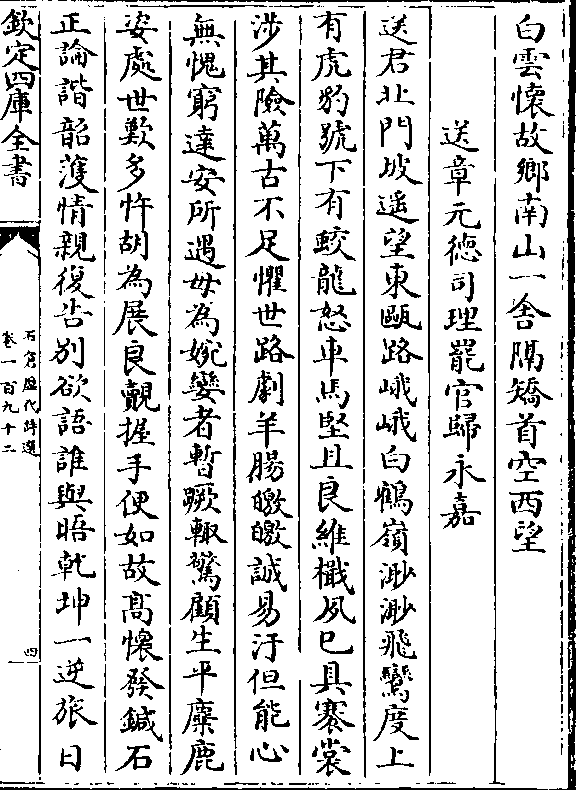 白雲懷故鄉南山一舍隔矯首空西望
送章元德司理罷官歸永嘉
送君北門坡遥望東甌路峨峨白鶴嶺渺渺飛鸞度上
有虎豹號下有蛟龍怒車馬堅且良維檝夙已具褰裳
涉其險萬古不足懼世路劇羊腸皦皦誠易汙但能心
無愧窮達安所遇毋為婉孌者暫蹶輒驚顧生平麋鹿
姿處世歎多忤胡為展良覿握手便如故髙懷發鍼石
正論諧韶頀情親復告别欲語誰與晤乾坤一逆旅日
欽定四庫全書
石倉歷代詩選
卷一百九十二
四